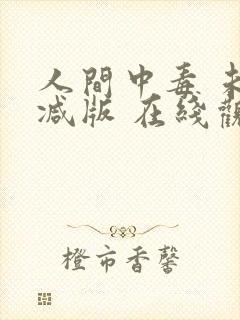 人間中毒 未
减版 在线觀
橙市香馨